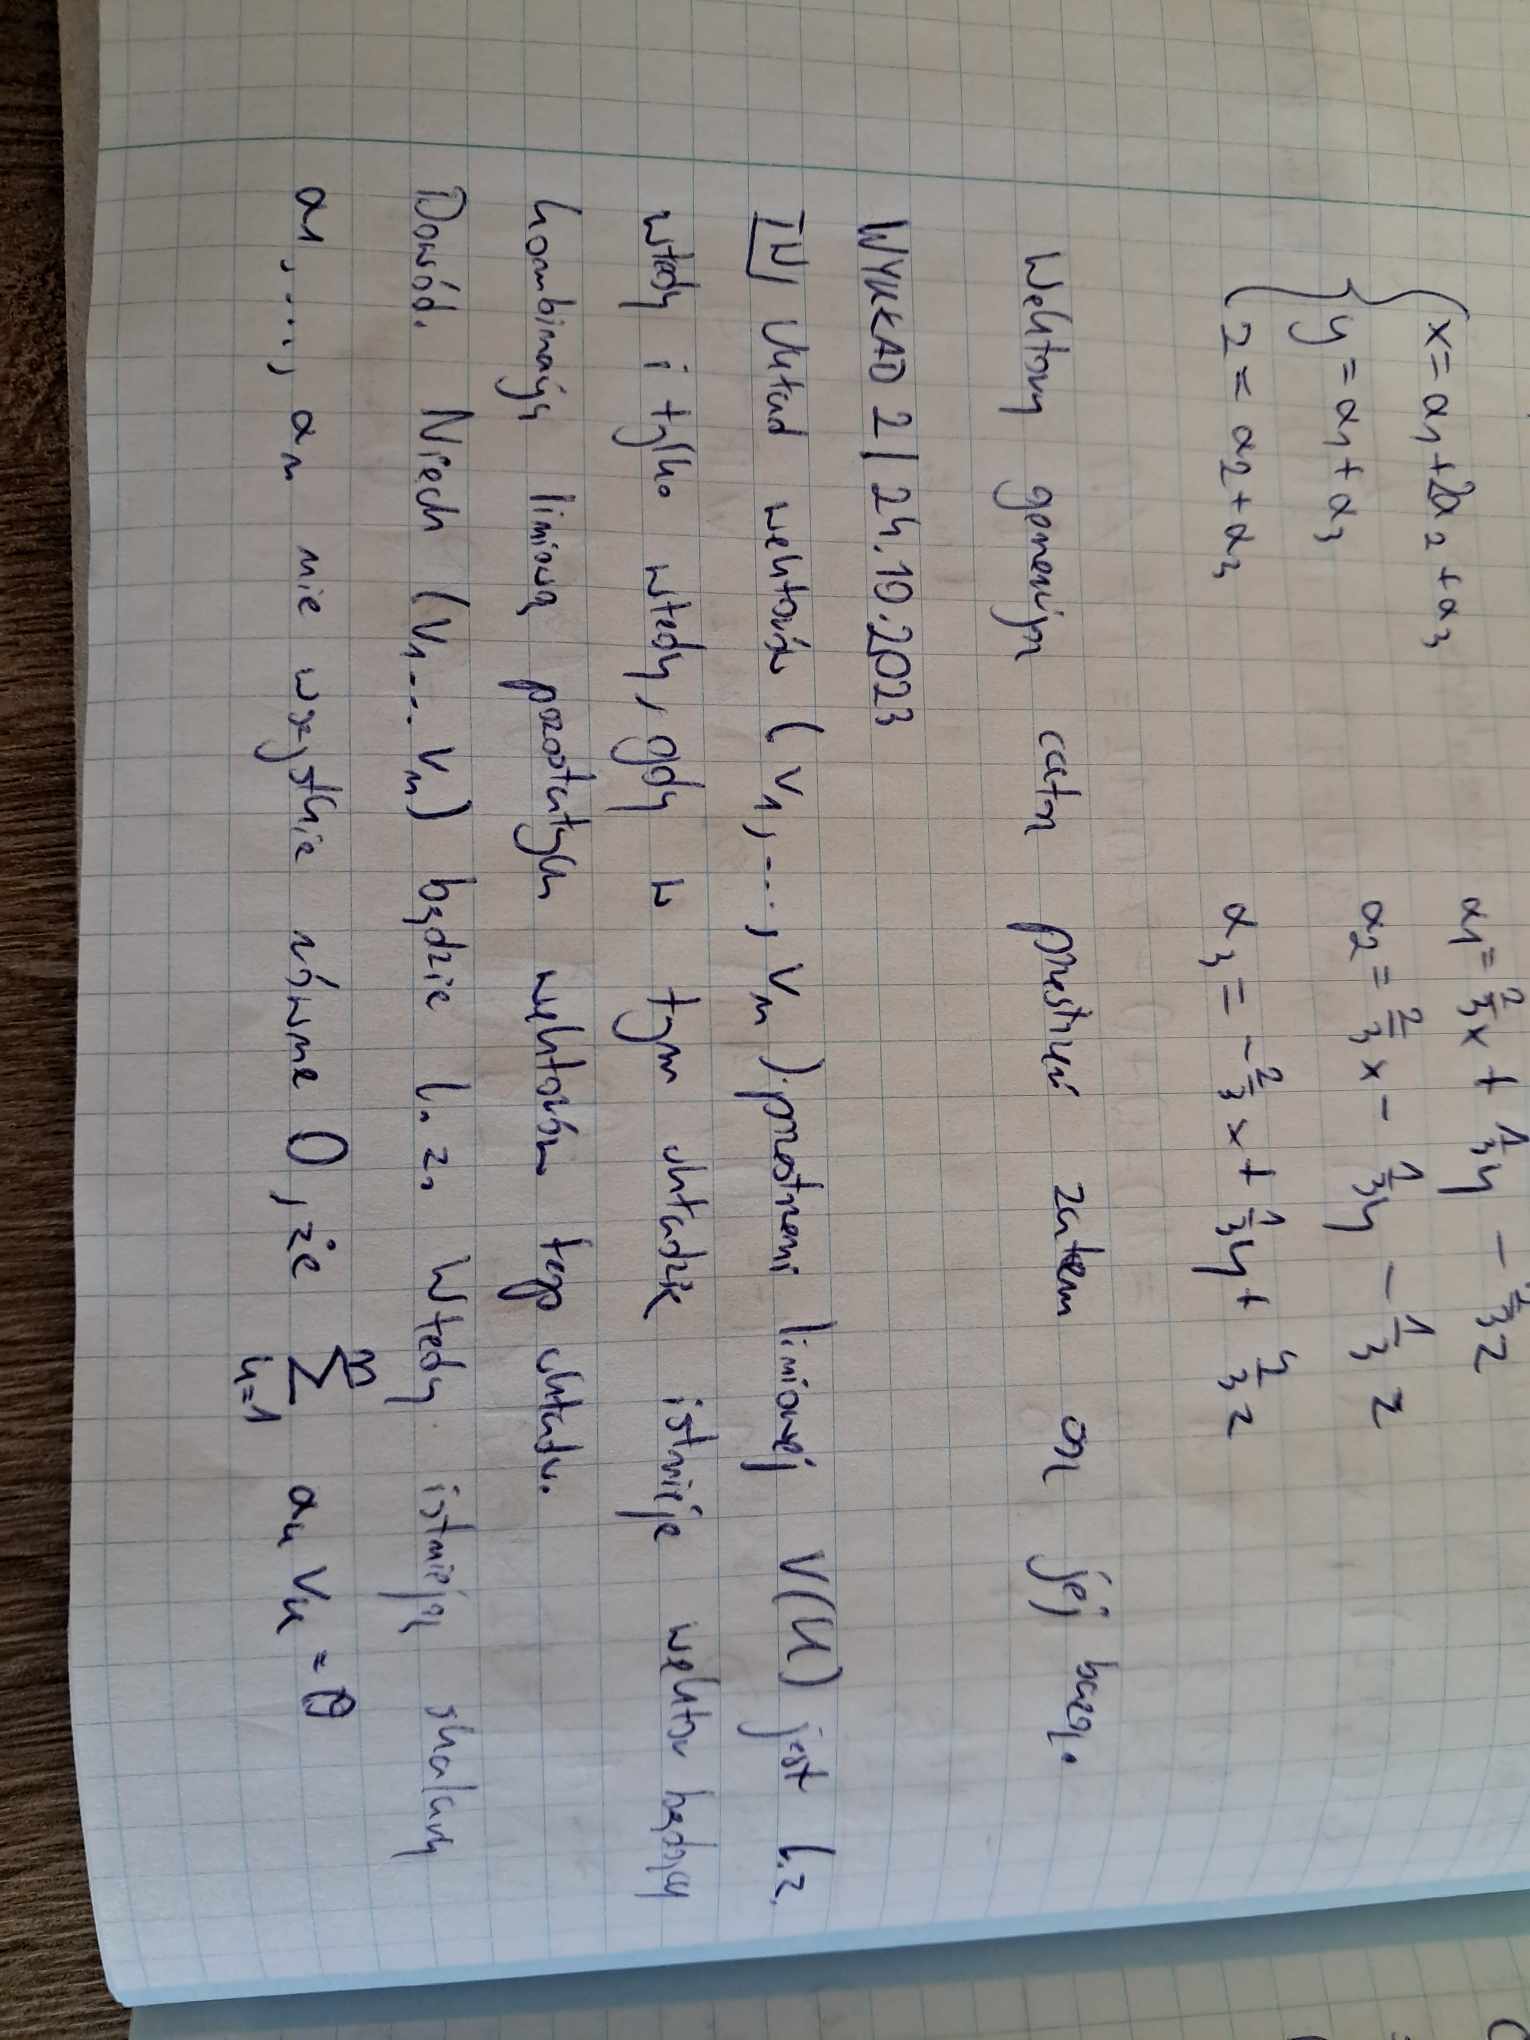 x = α1 + 2α2 + α3 α1 = 2/3 x + 1/3 y - 2/3 z
y = α1 + α3 α2 = 2/3 x - 1/3 y - 1/3 z
z = α2 + α3 α3 = - 2/3 x + 1/3 y + 4/3 z
Wektory generują całą przestrzeń zatem są jej bazą.
WYKŁAD 2 | 24.10.2023
TW Układ wektorów (v1, ..., vn) przestrzeni liniowej V(K) jest l.z.
wtedy i tylko wtedy, gdy w tym układzie istnieje wektor będący
kombinacją liniową pozostałych wektorów tego układu.
Dowód. Niech (v1 ... vn) będzie l.z. Wtedy istnieją skalary
α1, ..., αn nie wszystkie równe 0, że ∑ k=1 n αk vk = θ